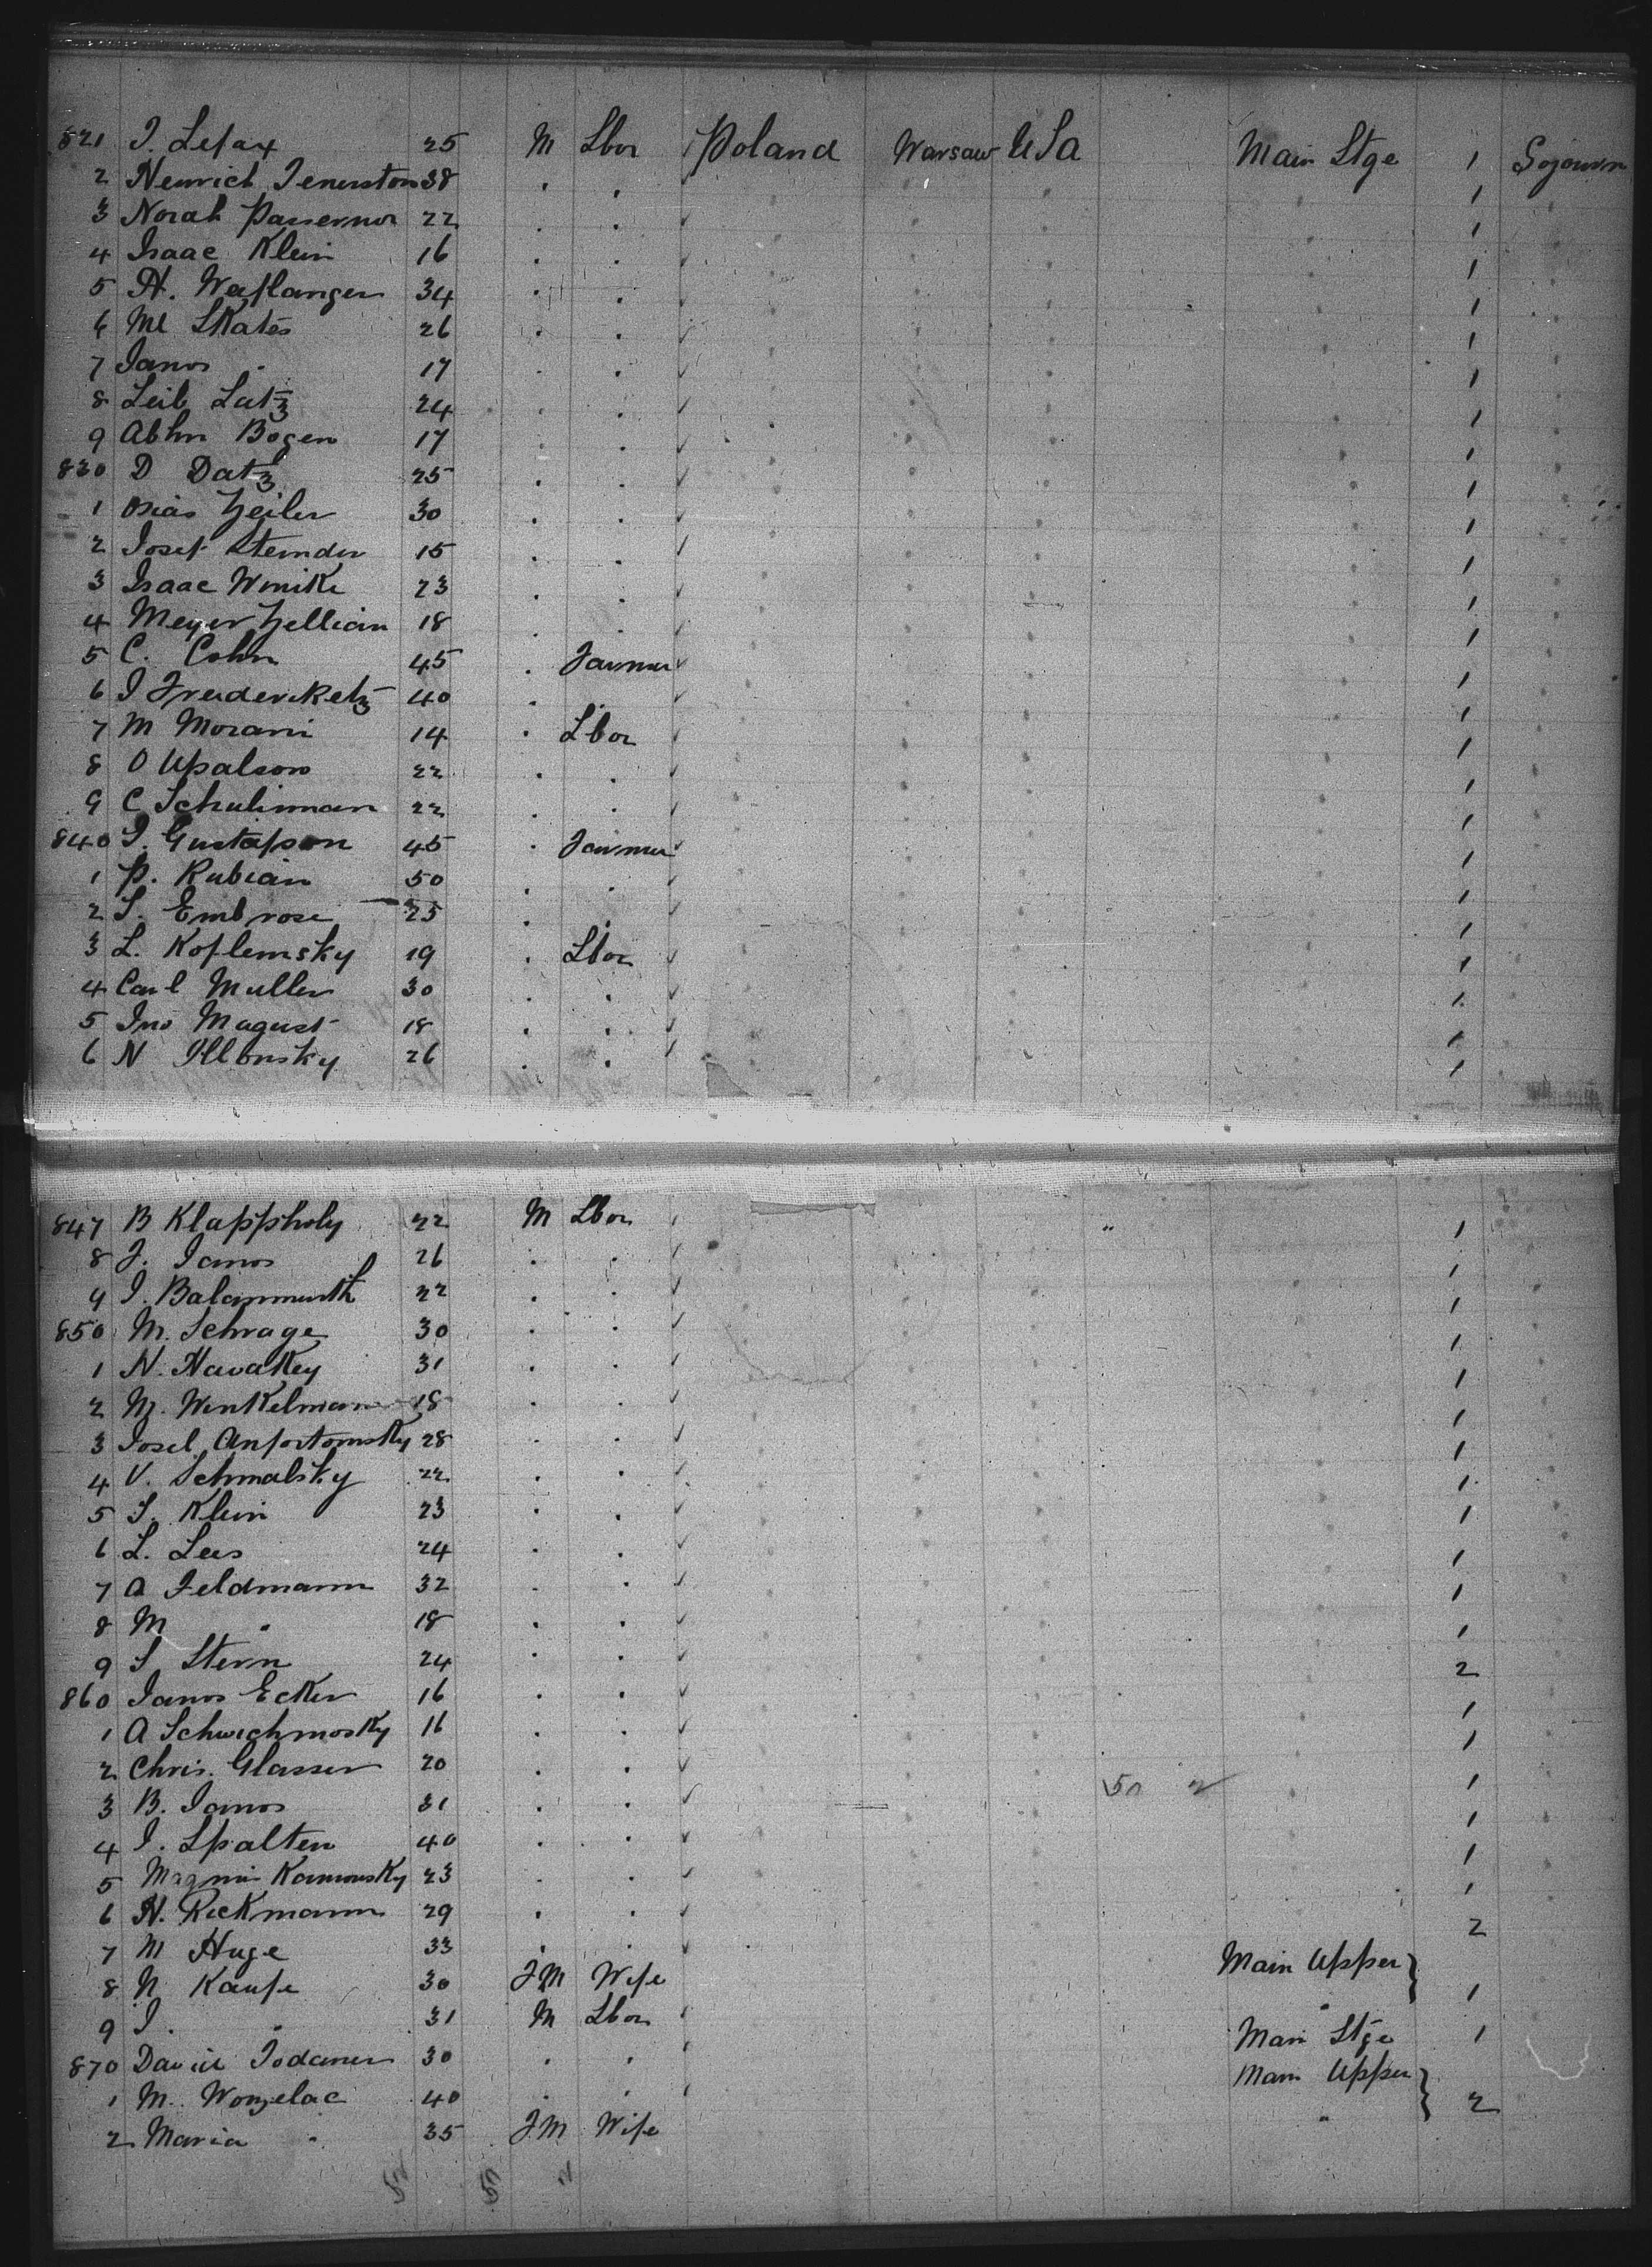 821 I. Lefax 25 M Lbor Poland Warsaw USa Main Stge 1 Sojourn
2 Henrich Jenerston 38 . . 1
3 Norah Passernor 22 . . 1
4 Isaac Klein 16 . . 1
5 H. Waflanger 34 . . 1
6 Ml SKates 26 . . 1
7 Janos . 17 . . 1
8 Leib Latz 24 . . 1
9 Abhm Bogen 17 . . 1
830 D Datz 25 . . 1
1 Osias Zeiler 30 . . 1
2 Josef Sternder 15 . . 1
3 Isaac Winike 23 . . 1
4 Meyer Zellian 18 . . 1
5 C. Cohn 45 . Farmer 1
6 I Frederiketz 40 . . 1
7 M Morani 14 . Lbor 1
8 O Upalson 22 . . 1
9 C Schulinman 22 . . 1
840 I. Gustafson 45 . Farmer 1
1 P. Rubian 50 . . 1
2 S. Embrose 25 . . 1
3 L. Koflemsky 19 . Lbor 1
4 Carl Muller 30 . . 1
5 Jno Magust 18 . . 1
6 N Illonsky 26 . . 1
847 B Klappholy 22 M Lbor " 1
8 J. Janos 26 . . 1
9 I. Balammuth 22 . . 1
850 M. Schrage 30 . . 1
1 N. Hawakey 31 . . 1
2 M. Winkelman 18 . . 1
3 Josel Anfortomsky 28 . . 1
4 V. Schmalsky 22 . . 1
5 S. Klein 23 . . 1
6 L. Lees 24 . . 1
7 A Feldmann 32 . . 1
8 M " 18 . . 1
9 S Stern 24 . . 2
860 Janos Ecker 16 . . 1
1 A Schwichmosky 16 . . 1
2 Chris. Glasser 20 . . 1
3 B. Janos 31 . . 1
4 I. Spalten 40 . . 1
5 Magnus Kamonsky 23 . . 1
6 H. Rickmann 29 . . 2
7 M Huge 33 . . Main Upper
8 N Kaufe 30 FM Wife " 1
9 I. " 31 M Lbor Main Stge 1
870 David Jodaner 30 . . Main Upper
1 M. Wonzelac 40 . . 2
2 Maria " 35 FM Wife "